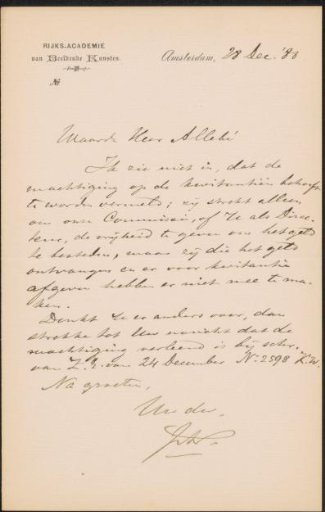 RIJKS-ACADEMIE
van Beeldende Kunsten.
№
Amsterdam, 28 Dec. '83
Waarde Heer Allebé
Ik zie niet in, dat de
machtiging op de kwitantiën behoeft
te worden vermeld; zij strekt alleen
om onze Commissie, of Ue als Direc-
teur, de vrijheid te geven om het geld
te besteden, maar zij die het geld
ontvangen en er voor kwitantie
afgeven hebben er niet mee te ma-
ken.
Denkt Ue er anders over, dan
strekke tot Uw naricht dat de
machtiging verleend is bij schr.
van Z.E. van 24 December No 2598 K.W.
Na groeten,
Uwdw.